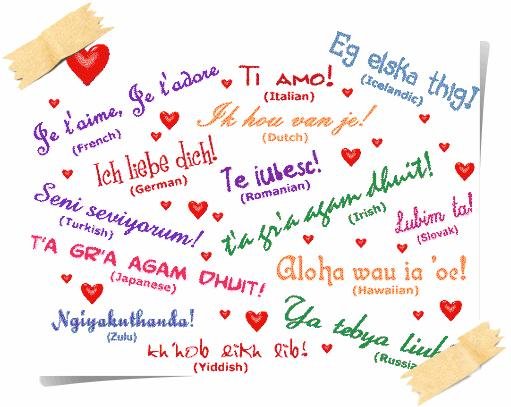 Eg elska thig!
(Icelandic)
Je t'aime, Je t'adore
(French)
Ti amo!
(Italian)
Ik hou van je!
(Dutch)
Ich liebe dich!
(German)
Te iubesc!
(Romanian)
t'a gr'a agam dhuit!
(Irish)
Seni seviyorum!
(Turkish)
Lubim ta!
(Slovak)
T'A GR'A AGAM DHUIT!
(Japanese)
Aloha wau ia 'oe!
(Hawaiian)
Ngiyakuthanda!
(Zulu)
Ya tebya
kh'hob likh lib!
(Yiddish)